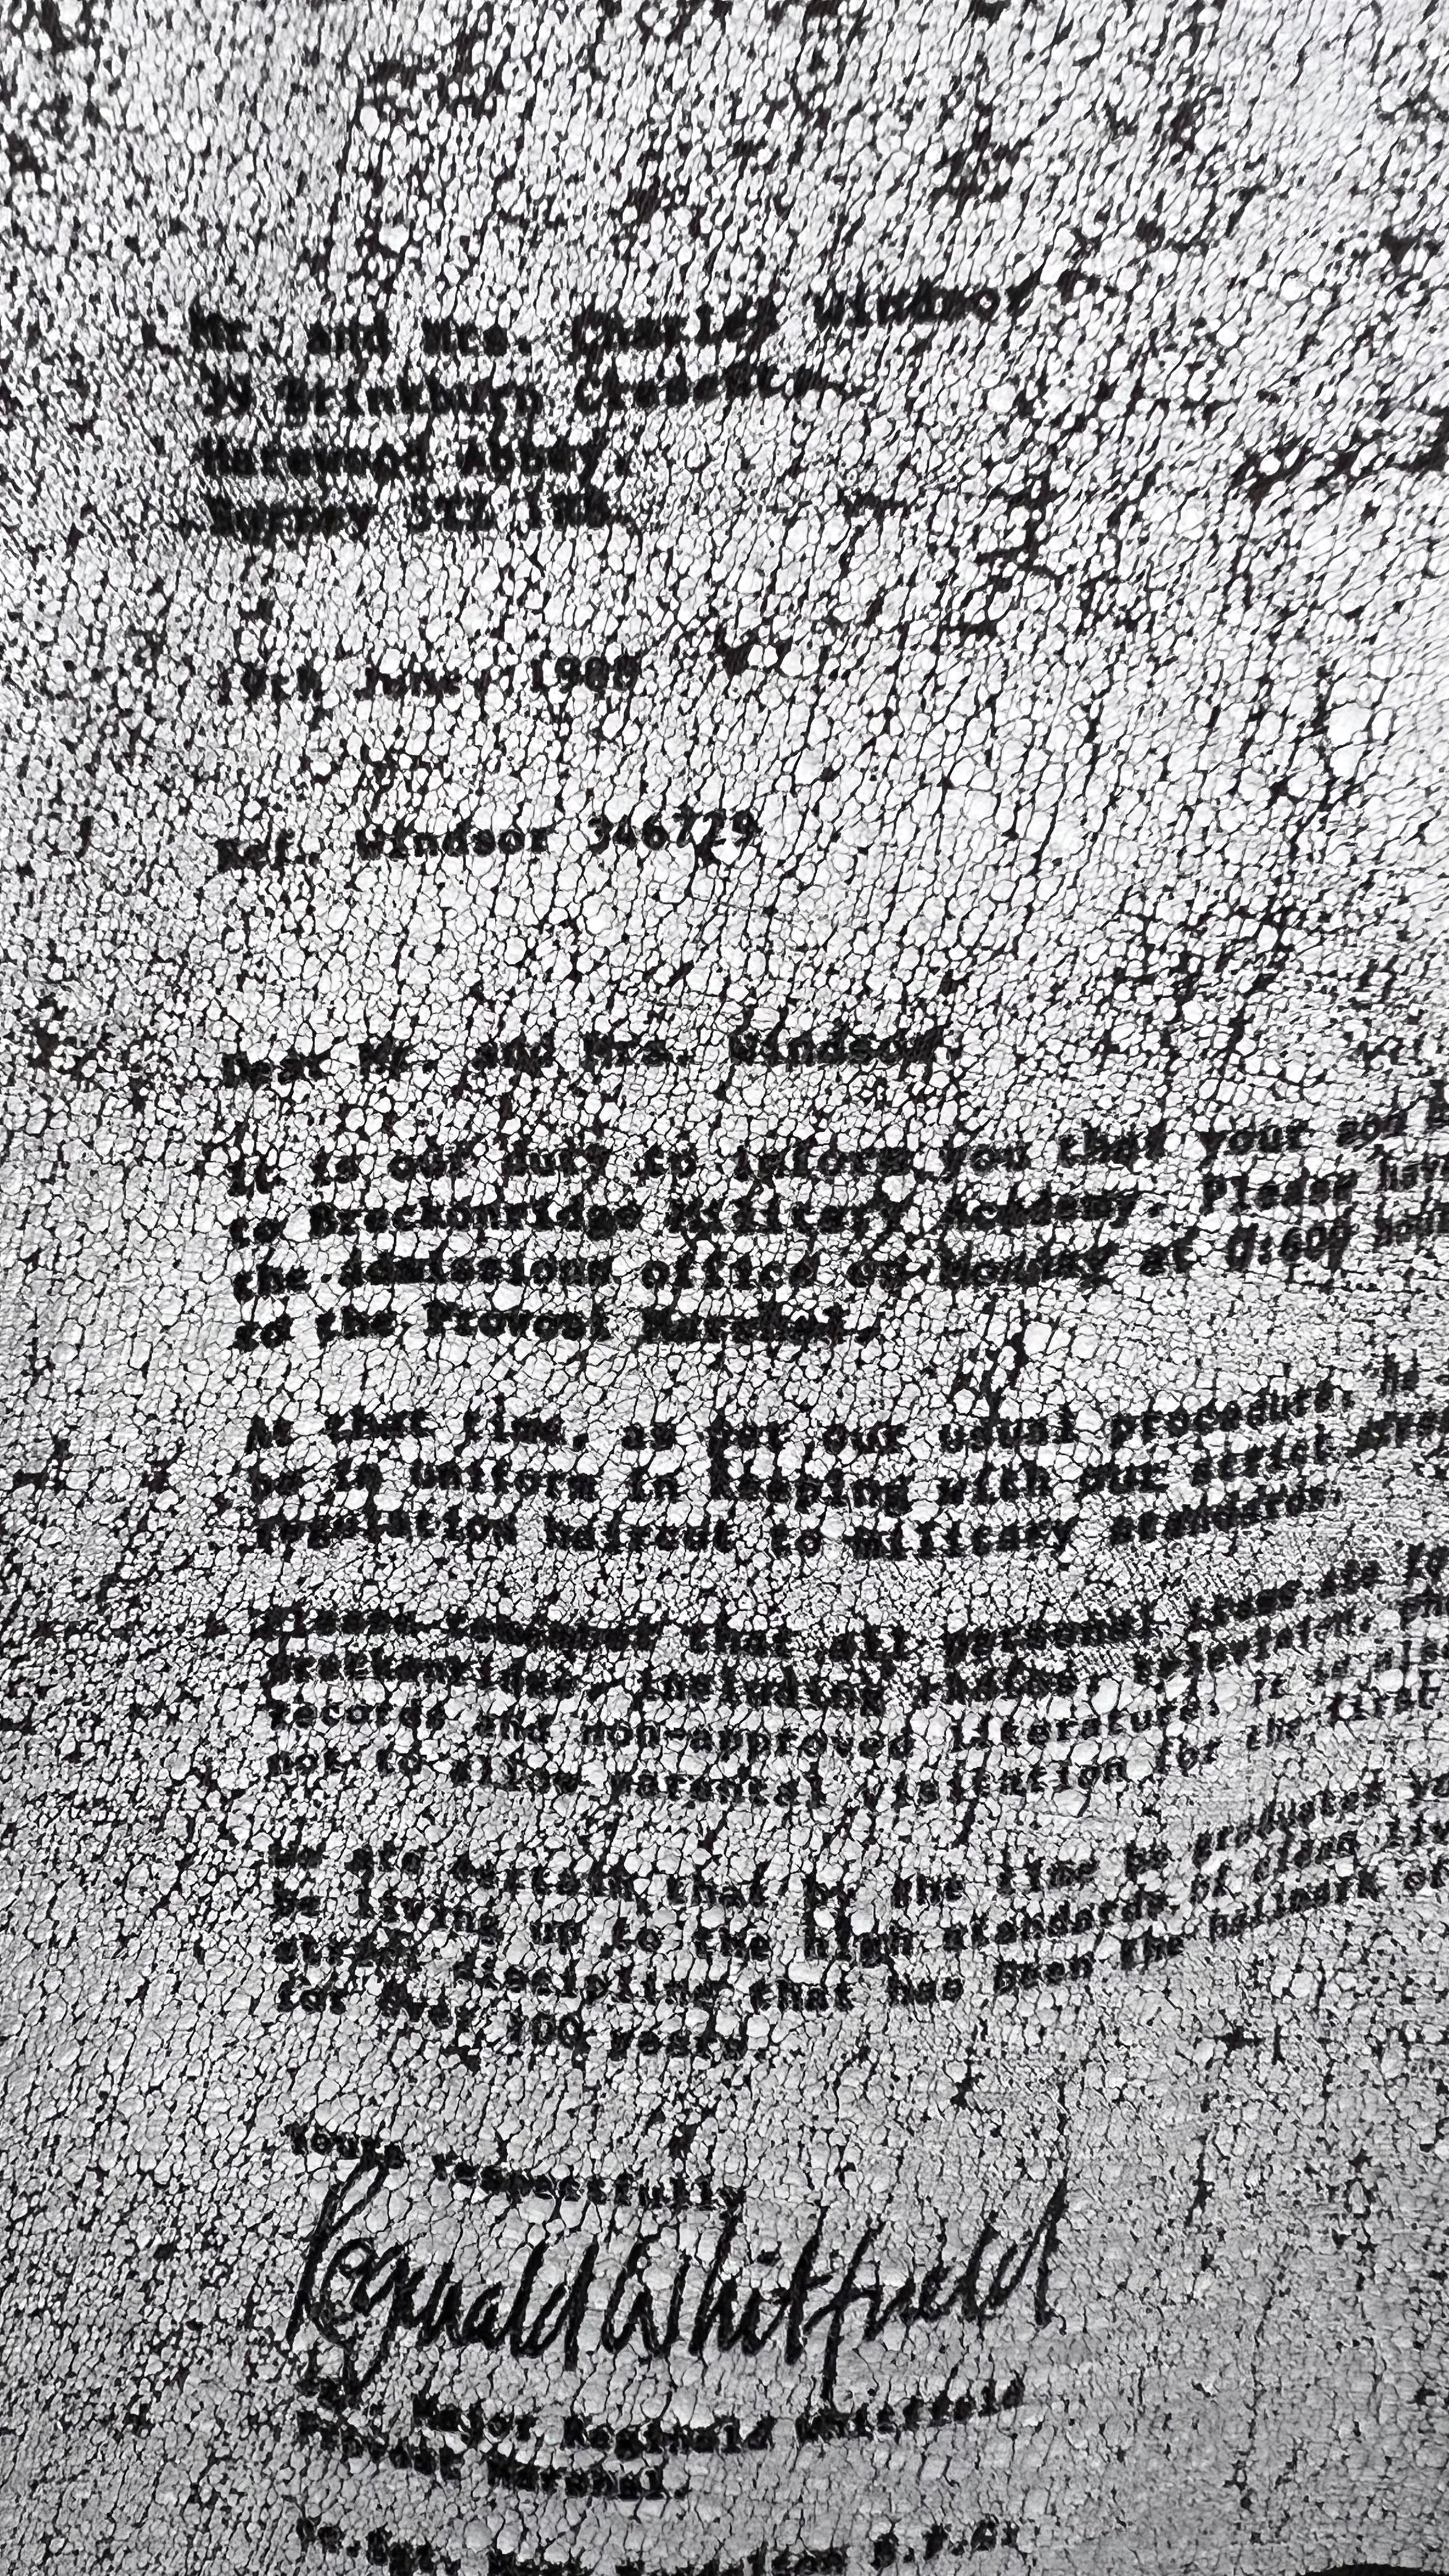 Mr. and Mrs. Charles Windsor
Brinkburn Crescent
Abbey
Surrey
19th June, 1989
Ref.: Windsor 346729
Dear Mr. and Mrs. Windsor,
It is our duty to inform you that your son
to Breckonridge Military Academy. Please have
the admissions office on Monday at 0:600 hours
to the Provost Marshal.
At that time, as per our usual procedure, he
be in uniform in keeping with our strict
regulation haircut to military standards.
Please remember that all personal items are
Breckonridge, including radios, television,
records and non-approved literature. It is also
not to allow parental visitation for the first
We are certain that by the time he graduates
be living up to the high standards of
strict discipline that has been the hallmark of
for over 100 years.
Yours respectfully
Reginald Whitfield
Major Reginald Whitfield
Provost Marshal.